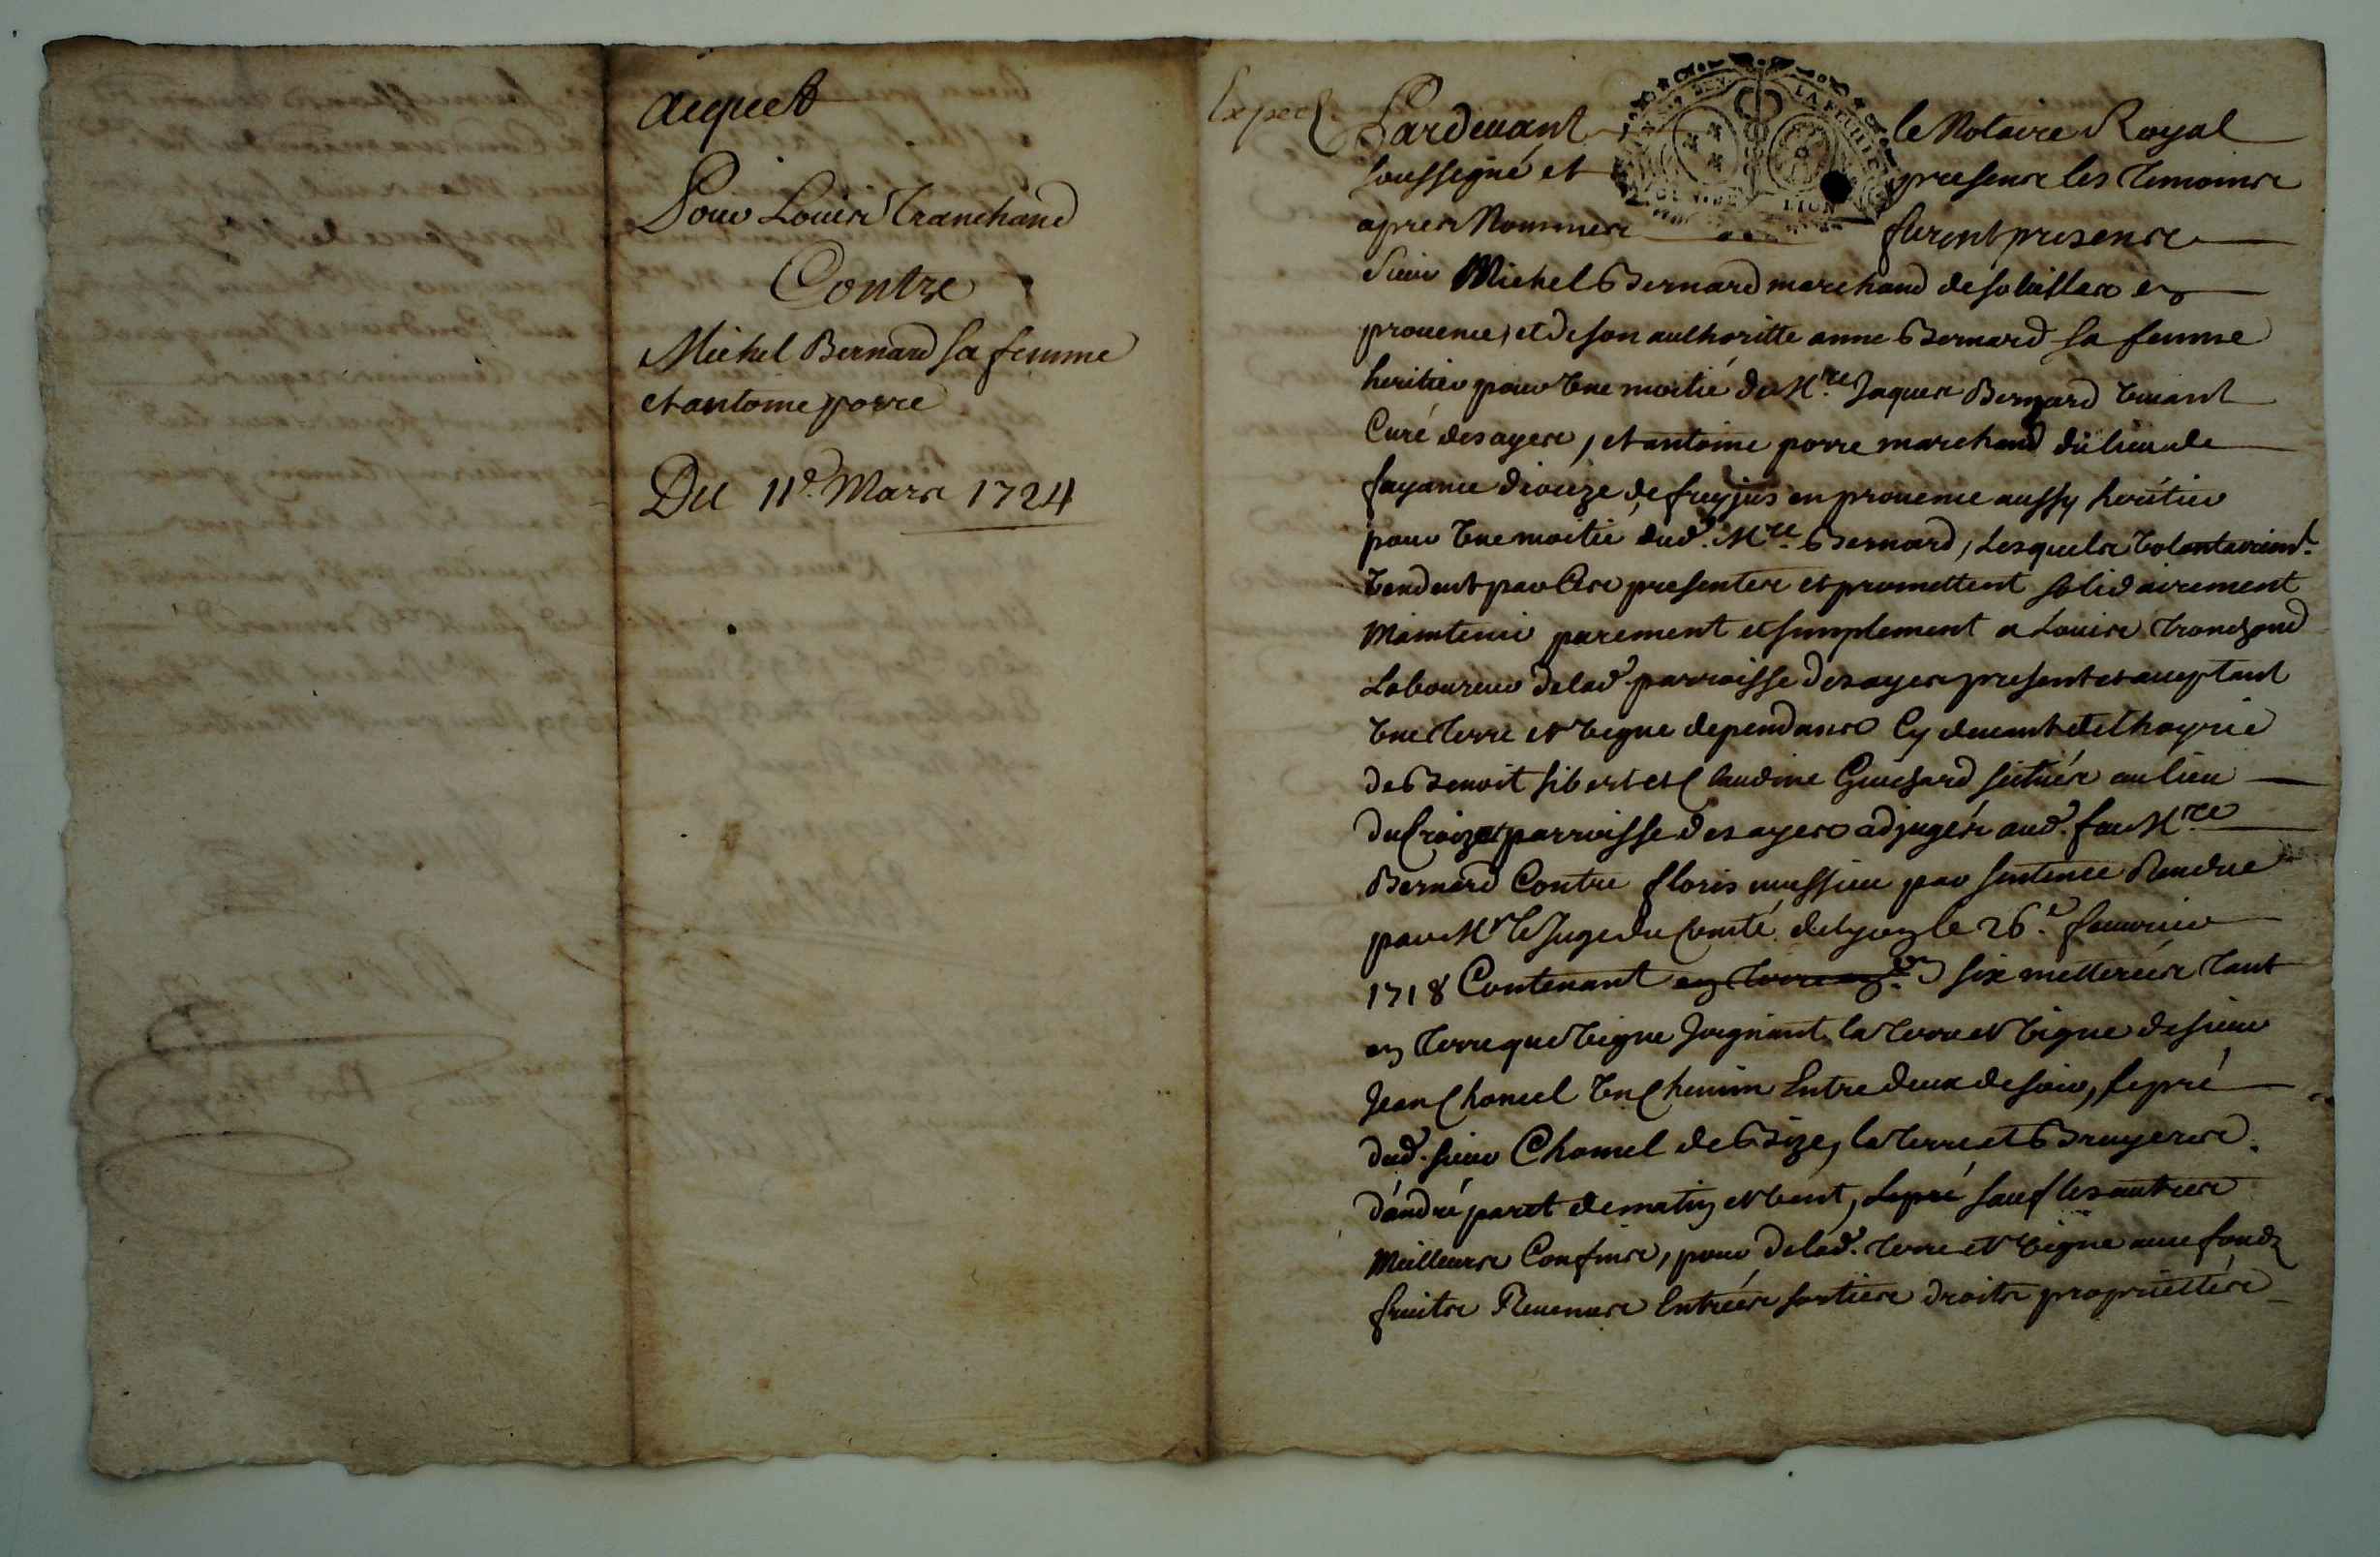 acquet
Pour Louis Tranchand
Contre
Michel Bernard sa femme
et antoine porre
Du 11e. Mars 1724
Exped
Pardevant le Notaire Royal
soussigné et presence les temoins
apres Nommes furent presens
sieur Michel Bernard marchand de en
provence, et de son authoritte anne Bernard sa femme
heritier pour une moitié de Mre Jaques Bernard vivant
Curé desayes, et antoine porre marchand du lieu de
fayance diocize de freyjus en provence aussy heritier
pour une moitié dud. Mre Bernard, Lesquels volontairemt.
vendent par Ces presentes et promettent solidairement
Maintenir purement et simplement a Louis Tranchand
Laboureur de lad. parroisse desayes present et acceptant
une terre et vigne dependans Cy devant de lhoyrie
de Benoit sibert et Claudine Guichard situés au lieu
du Croizet parroisse desayes adjugés aud. feu Mre
Bernard Contre floris mussieu par sentence Rendue
par Mr le Juge du Comté de lyon le 26e. feuvrier
1718 Contenant en terre en six metterées tant
en terre que vigne Joignant la terre et vigne de sieur
Jean Chomel un Chemin Entre deux de soir, le pré
dud. sieur Chomel de Bize, la terre et Bruyeres
d'andré paret de matin et vent, Le pré sauf les autres
Meilleurs Confins, pour de lad. terre et vigne avec fonds
fruits Revenus Entrées sorties droits propriettés